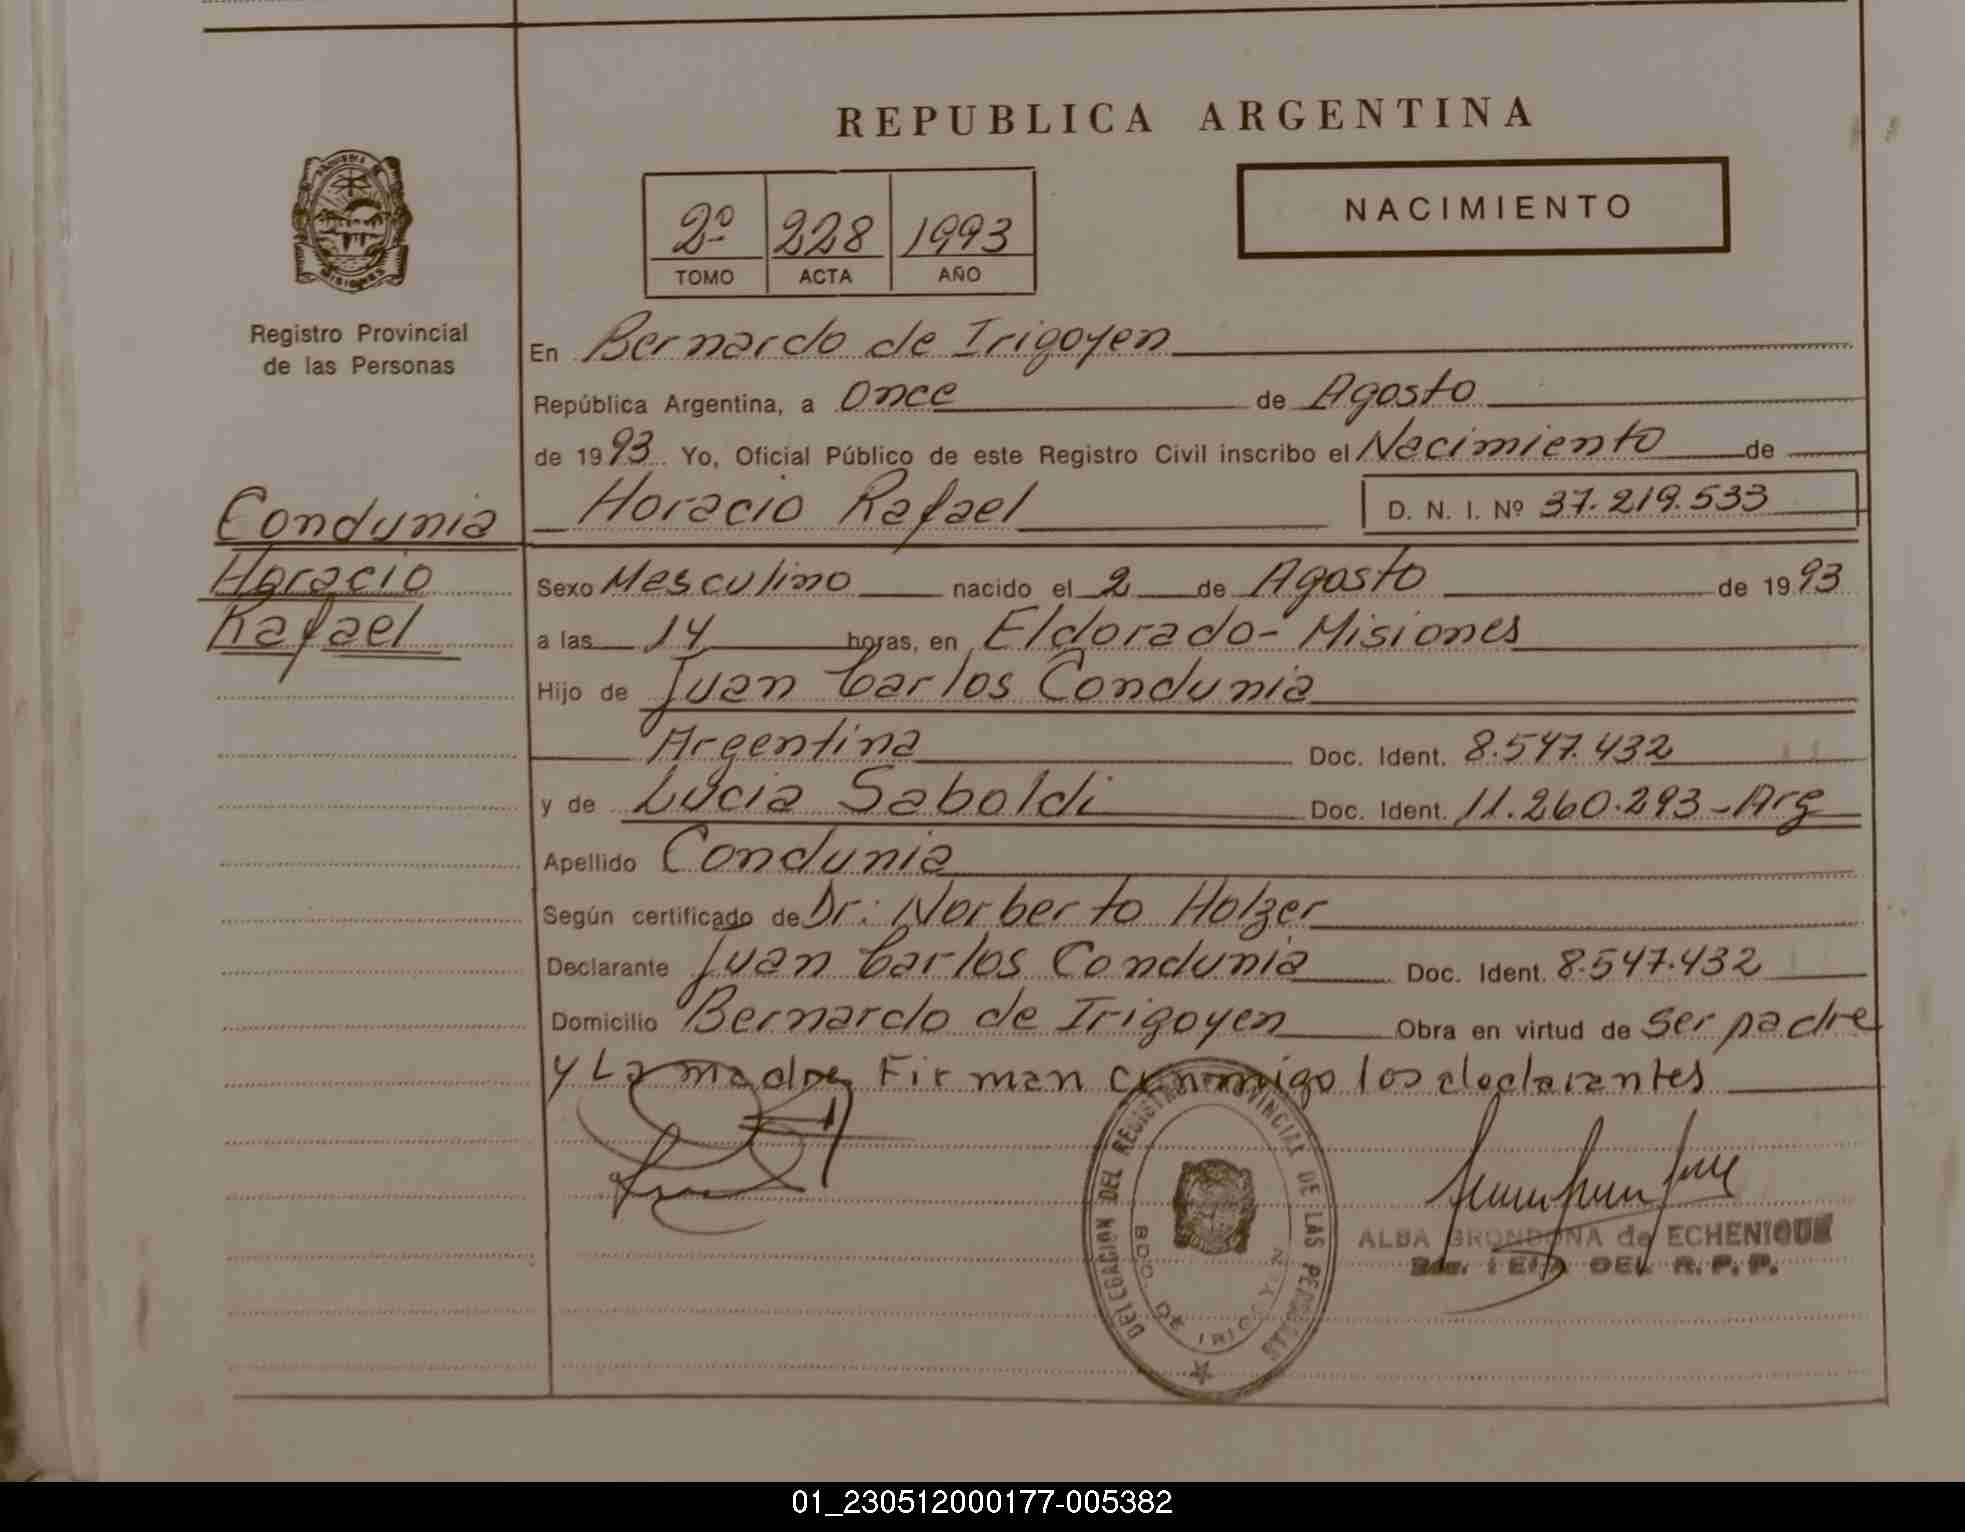 REPUBLICA ARGENTINA
2º 228 1993
TOMO ACTA AÑO
NACIMIENTO
MISIONES
Registro Provincial
de las Personas
En Bernardo de Irigoyen
República Argentina, a Once de Agosto
de 1993 Yo, Oficial Público de este Registro Civil inscribo el Nacimiento de
Horacio Rafael D. N. I. Nº 37.219.533
Condunia
Horacio
Rafael
Sexo Masculino nacido el 2 de Agosto de 1993
a las 14 horas, en Eldorado - Misiones
Hijo de Juan Carlos Condunia
Argentina Doc. Ident. 8.547.432
y de Lucia Saboldi Doc. Ident. 11.260.293 - Arg
Apellido Condunia
Según certificado de Dr: Norberto Holzer
Declarante Juan Carlos Condunia Doc. Ident. 8.547.432
Domicilio Bernardo de Irigoyen Obra en virtud de ser padre
y La madre Firman conmigo los declarantes
DELEGACION DEL REGISTRO PROVINCIAL DE LAS PERSONAS
BDO. DE IRIGOYEN
ALBA BRONDONA de ECHENIQUE
DEL R. P. P.
01_230512000177-005382